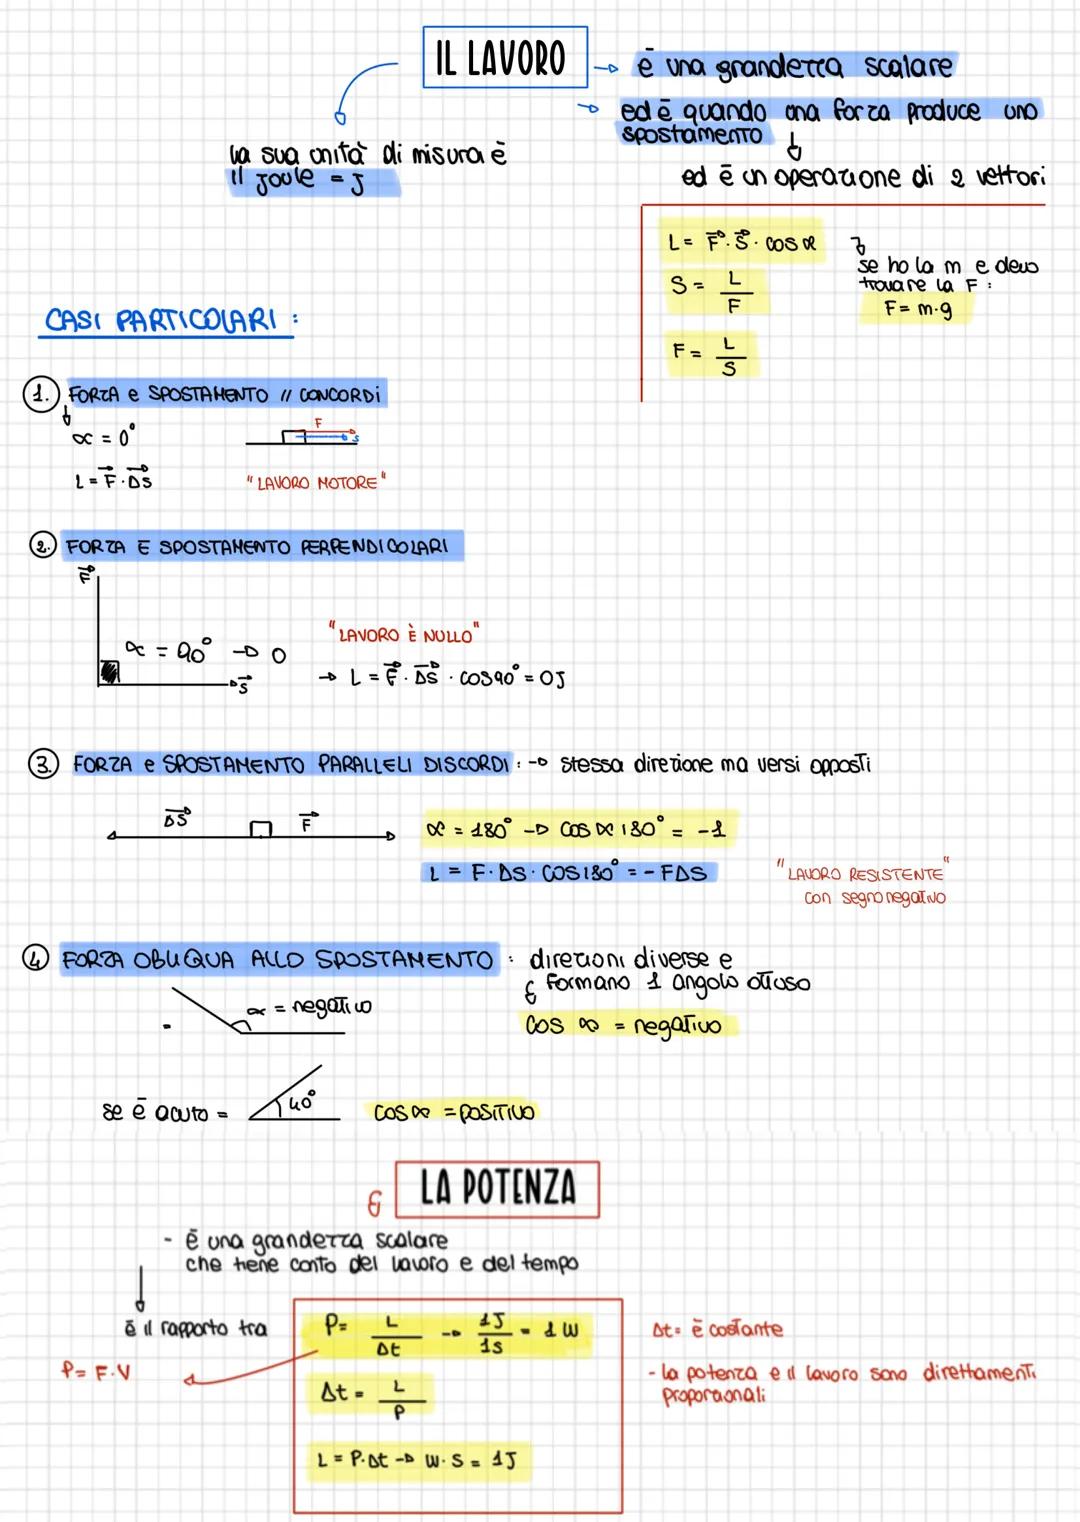 IL LAVORO
→ è una grandezza scalare
→ ed è quando una forza produce uno
spostamento
ed è un operazione di 2 vettori
La sua unità di misura è
il Joule = J
L = F · S · cos α
S = L / F
F = L / S
se ho la m e devo
trovare la F :
F = m·g
CASI PARTICOLARI :
1. FORZA e SPOSTAMENTO // CONCORDI
α = 0°
L = F · ΔS
F
S
"LAVORO MOTORE"
2. FORZA E SPOSTAMENTO PERPENDICOLARI
F
α = 90° → 0
S
"LAVORO È NULLO"
→ L = F · ΔS · cos90° = 0J
3. FORZA e SPOSTAMENTO PARALLELI DISCORDI : → stessa direzione ma versi opposti
ΔS F
α = 180° → cos α 180° = -1
L = F · ΔS · cos180° = - FΔS
"LAVORO RESISTENTE"
con segno negativo
4 FORZA OBLIQUA ALLO SPOSTAMENTO : direzioni diverse e
formano 1 angolo ottuso
α = negativo
cos α = negativo
se è acuto =
40°
cos α = positivo
LA POTENZA
- è una grandezza scalare
che tiene conto del lavoro e del tempo
è il rapporto tra
P = L / Δt → 1J / 1s = 1 W
P = F·V
Δt = L / P
L = P·Δt → W·S = 1J
Δt = è costante
- la potenza e il lavoro sono direttamenti
proporzionali